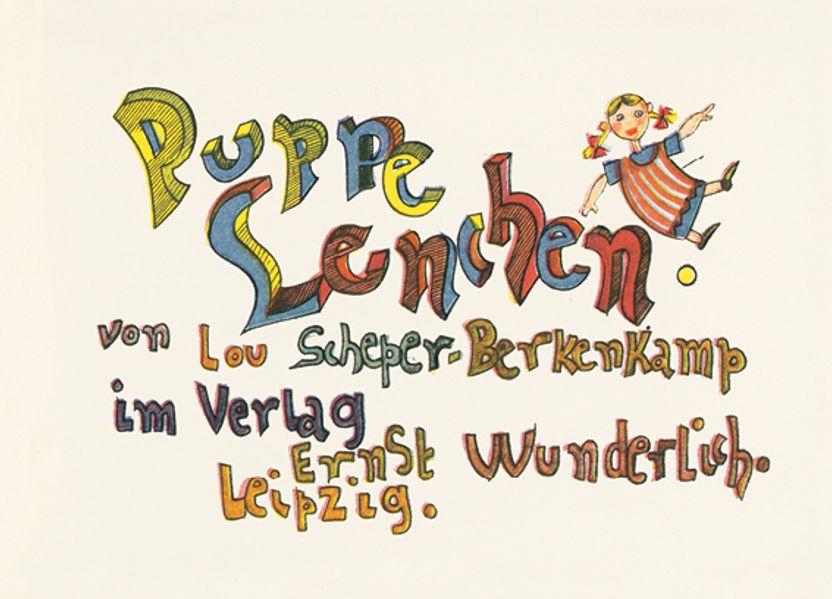 Puppe
Lenchen.
von Lou Scheper-Berkenkamp
im Verlag
Ernst Wunderlich.
Leipzig.